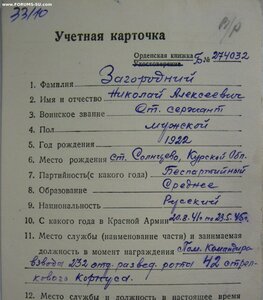 www.FORUMS-SU.com
33/10
Учетная карточка
Орденская книжка
Удостоверение Б № 274032
1. Фамилия Загородний
2. Имя и отчество Николай Алексеевич
3. Воинское звание Ст. сержант
4. Пол мужской
5. Год рождения 1922
6. Место рождения ст. Солнцево, Курской Обл.
7. Партийность (с какого года) Беспартийный
8. Образование Среднее
9. Национальность Русский
10. С какого года в Красной Армии 20.8.41 по 23.5.46г.
11. Место службы (наименование части) и занимаемая
должность в момент награждения Пом. Командира
взвода 232 отд. развед. роты 42 стрел-
кового корпуса.
12. Место службы и должность в настоящее время